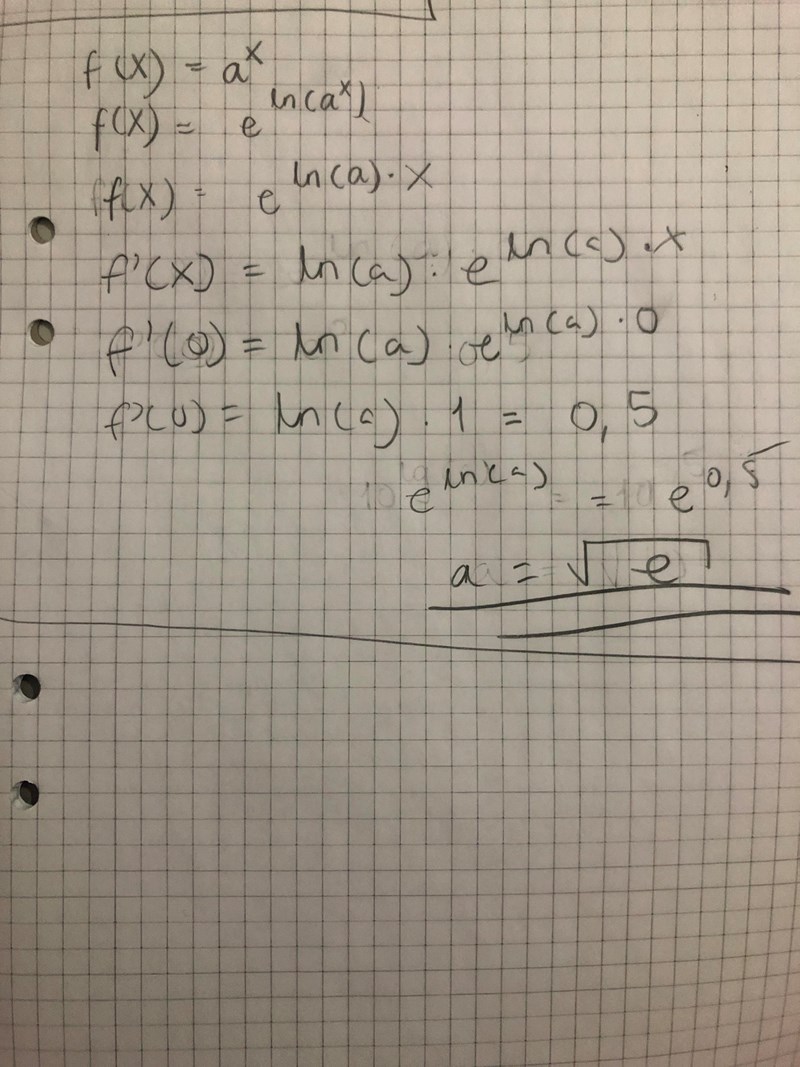 f(x) = a^x
f(x) = e^ln(a^x)
f(x) = e^ln(a)·x
f'(x) = ln(a) · e^ln(a)·x
f'(0) = ln(a) · e^ln(a)·0
f'(0) = ln(a) · 1 = 0,5
e^ln(a) = e^0,5
a = √e